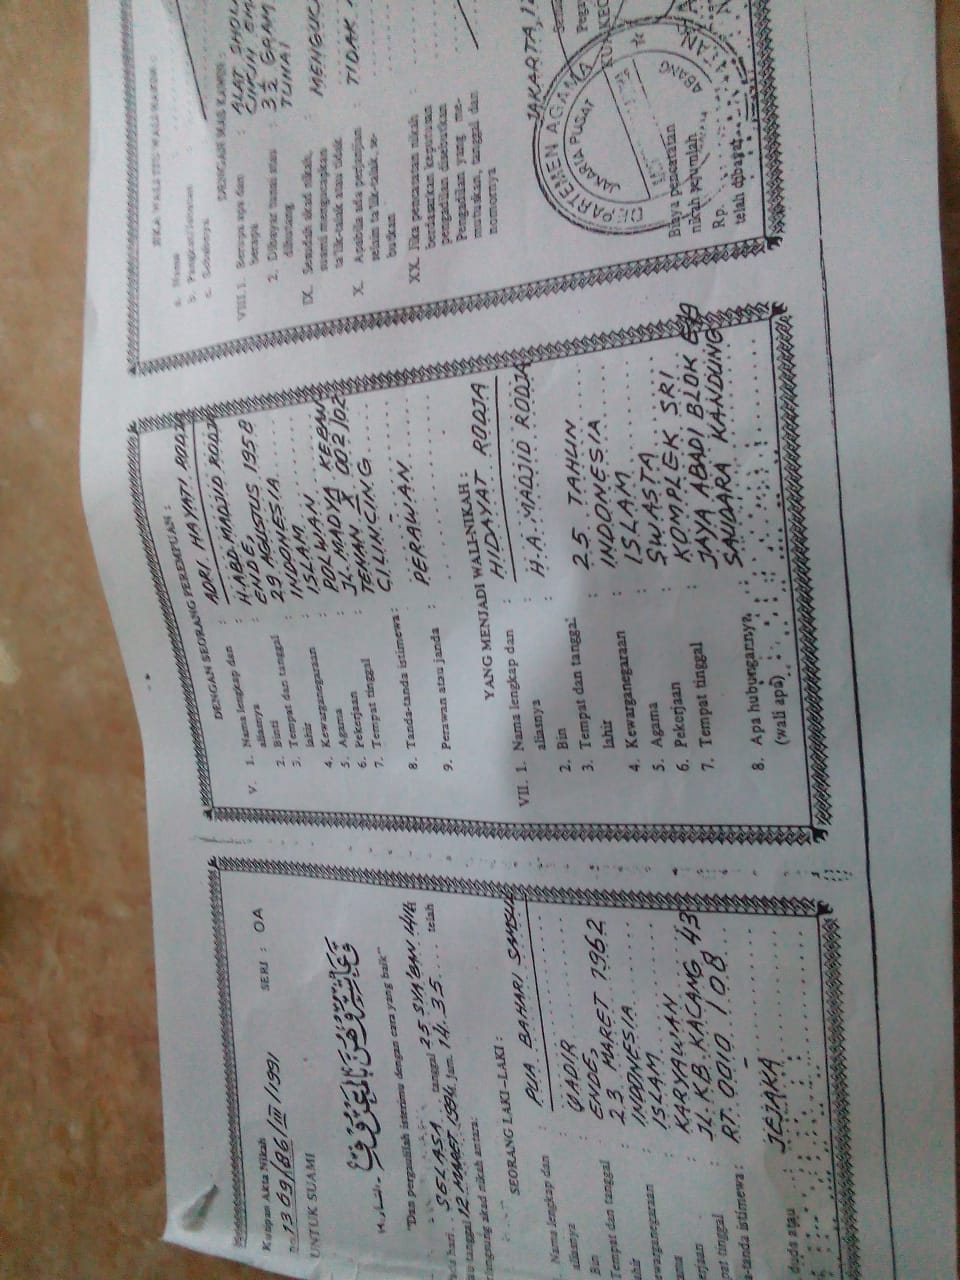 Kutipan Akta Nikah
No. 1369/86/III/1991
SERI : OA
UNTUK SUAMI
وَعَاشِرُوْهُنَّ بِالْمَعْرُوْفِ
"Dan pergaulilah isterimu dengan cara yang baik"
hari SELASA tanggal 25 SYA'BAN 141
tanggal 12 MARET 1991 jam. 14.35 telah
akad nikah antara:
SEORANG LAKI-LAKI :
Nama lengkap dan : PUA BAHARI SAMSUL
aliasnya
Bin : QADIR
Tempat dan tanggal : ENDE,
23 MARET 1962
: INDONESIA
: ISLAM
: KARYAWAN
tinggal : JL. KB. KACANG 43
RT. 0010 / 08
-tanda istimewa : -
duda atau JEJAKA
DENGAN SEORANG PEREMPUAN :
V. 1. Nama lengkap dan : ADRI HAYATI RODJA
aliasnya
2. Binti : H. ABD. MADJID RODJA
3. Tempat dan tanggal : ENDE,
lahir 29 AGUSTUS 1958
4. Kewarganegaraan : INDONESIA
5. Agama : ISLAM
6. Pekerjaan : POLWAN
7. Tempat tinggal : JL. MADYA KEBAN
TEHAN X 002/02
CILINCING
8. Tanda-tanda istimewa : -
9. Perawan atau janda : PERAWAN
YANG MENJADI WALI-NIKAH :
VII. 1. Nama lengkap dan : HIDAYAT RODJA
aliasnya
2. Bin : H. A. MADJID RODJA
3. Tempat dan tanggal
lahir : 25 TAHUN
4. Kewarganegaraan : INDONESIA
5. Agama : ISLAM
6. Pekerjaan : SWASTA
7. Tempat tinggal : KOMPLEK SRI
JAYA ABADI BLOK
8. Apa hubungannya : SAUDARA KANDUNG
(wali apa)
JIKA WALI ITU WALI HAKIM :
a. Nama
b. Pangkat/Jabatan
c. Sebabnya
DENGAN MAS KAWIN :
VIII. 1. Berupa apa dan : ALAT
berapa CINCIN
3½ GRAM
2. Dibayar tunai atau : TUNAI
dihutang
IX. Sesudah akad nikah, :
suami mengucapkan
ta'lik-talak atau tidak
X. Apabila ada perjanjian : TIDAK
selain ta'lik-talak, se-
butkan
XX. Jika pencatatan nikah
berdasarkan keputusan
pengadilan disebutkan
Pengadilan yang me-
mutuskan, tanggal dan
nomornya
JAKARTA, 1
DEPARTEMEN AGAMA
JAKARTA PUSAT
ABANG
Biaya pencatatan
nikah sejumlah
Rp.
telah dibayar